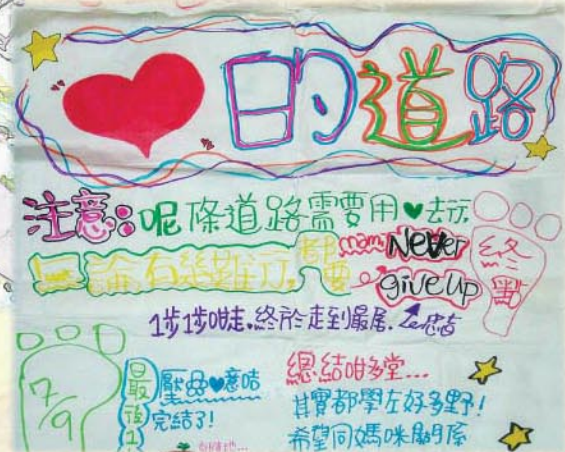 ❤的道路
注意：呢條道路需要用♥去行
無論有幾難行 都要 Never give up
終點
1步1步咁走.終於走到最尾.
7/9
最後1
完結了!
總結咁多堂...
其實都學左好多野!
希望同媽咪關係